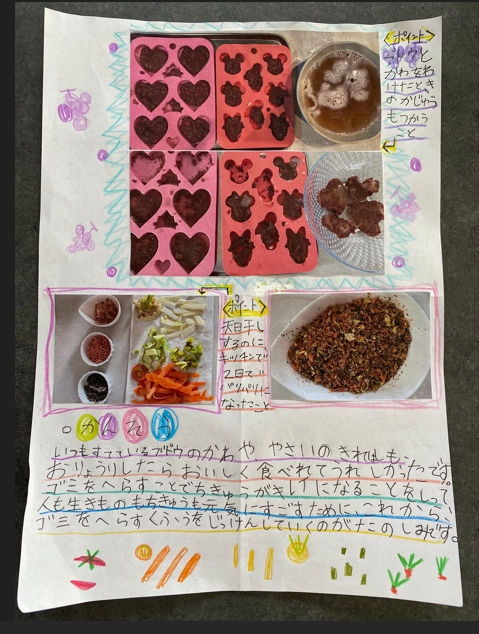 <ポイント>
ブドウと
かわをわ
けたとき
のかじゅう
もつかう
こと
<ポイント>
天日干し
するのに
キッチンで
2日で
パリパリに
なったこと
○かんそう
いつもすてているブドウのかわや、やさいのきれはしも、
おりょうりしたらおいしく食べれてうれしかったです。
ゴミをへらすことでちきゅうがキレイになることをしって
人も生きものもちきゅうも元気にすごすために、これから、
ゴミをへらすくふうをじっけんしていくのがたのしみです。